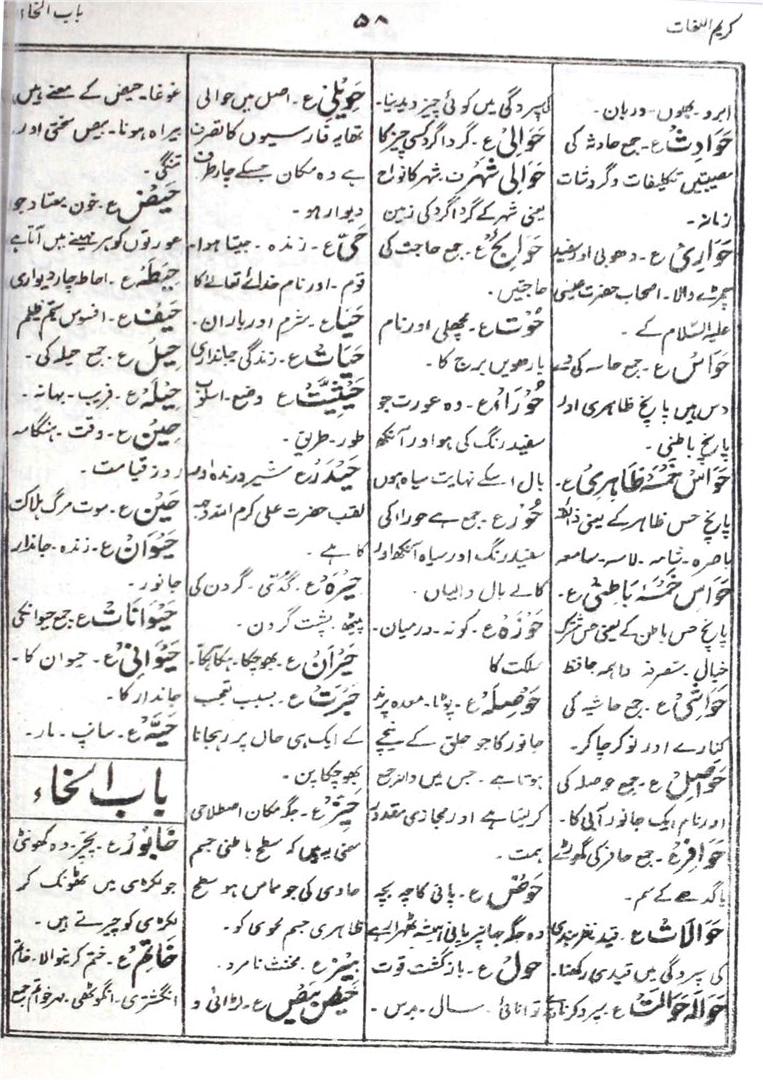 کریم اللغات
۵۸
باب الخاء
ابرو۔ بھوں۔ دربان۔
حَوَادِثْ ع۔ جمع حادثہ کی
مصیبتیں تکلیفات و گردشات
زمانہ۔
حَوَارِیْ ع۔ دھوبی اور سفید
چمڑے والا۔ اصحاب حضرت عیسیٰ
علیہ السلام کے۔
حَوَاسْ ع۔ جمع حاسہ کی
دس ہیں پانچ ظاہری اور
پانچ باطنی۔
حَوَاسِ خَمْسَہ ظَاہِرِیْ ع۔
پانچ حس ظاہر کے یعنی ذائقہ
باصرہ۔ شامہ۔ لامسہ۔ سامعہ
حَوَاسِ خَمْسَہ بَاطِنِیْ ع۔
پانچ حس باطن کے یعنی حس مشترک
خیال۔ متصرفہ واہمہ حافظہ
حَوَاشِیْ ع۔ جمع حاشیہ کی
کنارے اور نوکر چاکر۔
حَوَاصِلْ ع۔ جمع حوصلہ کی
اور نام ایک جانور آبی کا۔
حَوَافِرْ ع۔ جمع حافر کی گھوڑے
یا گدھے کے سم۔
حَوَالَاتْ ع۔ قید نظر بندی
کی سپردگی میں قیدی رکھنا۔
حَوَالَہ حَوَالَتْ ع۔ سپرد کرنا
کی سپردگی میں کوئی چیز دیدینا۔
حَوَالِیْ ع۔ گرداگرد کسی چیز کا
حَوَالِی شَہَرْ ف۔ شہر کا نواح
یعنی شہر کے گرداگرد کی زمین
حَوَائِجْ ع۔ جمع حاجت کی
حاجتیں۔
حُوْتْ ع۔ مچھلی اور نام
بارھویں برج کا۔
حُوْرَاءْ ع۔ وہ عورت جو
سفید رنگ کی ہو اور آنکھ
بال اسکے نہایت سیاہ ہوں
حُوْرْ ع۔ جمع ہے حورا کی
سفید رنگ اور سیاہ آنکھ اور
کالے بال والیاں۔
حَوْزَہ ع۔ کونہ۔ درمیان۔
ملکت کا
حَوْصِلَہ ع۔ پوٹا۔ معدہ پرند
جانور کا جو حلق کے نیچے
ہوتا ہے۔ جس میں دانہ جمع
کر لیتا ہے اور مجازی مقدور
ہمت۔
حَوْضْ ع۔ پانی کا چہ بچہ
وہ جگہ جہانپر پانی ہمیشہ ٹھہرا رہے
حَوْلْ ع۔ بازگشت قوت
توانائی۔ سال۔ برس۔
حَوِیْلِیْ ع۔ اصل میں حوالی
تھا یہ فارسیوں کا تصرف
ہے وہ مکان جسکے چار طرف
دیوار ہو۔
حَیّ ع۔ زندہ۔ جیتا ہوا۔
قوم۔ اور نام خدائے تعالےٰ کا
حَیَا ع۔ شرم اور باران۔
حَیَاتْ ع۔ زندگی جانداری
حَیْثِیَّتْ ع وضع۔ اسلوب
طور۔ طریق۔
حَیْدَرْ ع شیر درندہ اور
لقب حضرت علی کرم اللہ وجہہ
کا ہے۔
حِیْرَہ ع۔ گدّی۔ گردن کی
پیٹھ۔ پشت گردن۔
حَیْرَانْ ع۔ بھوچکا۔ ہکا بکا۔
حَیْرَتْ ع۔ بسبب تعجب
کے ایک ہی حال پر رہجانا
بھوچکا پن۔
حَیِّزْ ع۔ جگہ مکان اصطلاحی
معنی یہ ہیں کہ سطح باطنی جسم
حاوی کی جو مماس ہو سطح
ظاہری جسم محوی کو۔
حِیْزْ ع۔ مخنث نامرد۔
حَیْصْ بَیْصْ ع۔ لڑائی و
غوغا۔ حیض کے معنے ہیں
بیراہ ہونا۔ بیص سختی اور
تنگی۔
حَیْضْ ع۔ خون معتاد جو
عورتوں کو ہر مہینے میں آتا ہے
حِیْطَہ ع۔ احاطہ چار دیواری
حَیْفْ ع۔ افسوس ستم ظلم
حِیَلْ ع۔ جمع حیلہ کی۔
حِیْلَہ ع۔ فریب۔ بہانہ۔
حِیْنْ ع۔ وقت۔ ہنگامہ
روز قیامت۔
حَیْنْ ع۔ موت مرگ ہلاکت
حَیْوَانْ ع۔ زندہ۔ جاندار
جانور۔
حَیْوَانَاتْ ع جمع حیوان کی
حَیْوَانِیْ ع۔ حیوان کا۔
جاندار کا۔
حَیَّہ ع۔ سانپ۔ مار۔
باب الخاء
خَابُوْرْ ع۔ پچر۔ وہ کھونٹی
جو لکڑی میں ٹھونک کر
لکڑی کو چیرتے ہیں۔
خَاتِمْ ع۔ ختم کرنیوالا۔ خاتم
انگشتری۔ انگوٹھی۔ مہر خواتم جمع